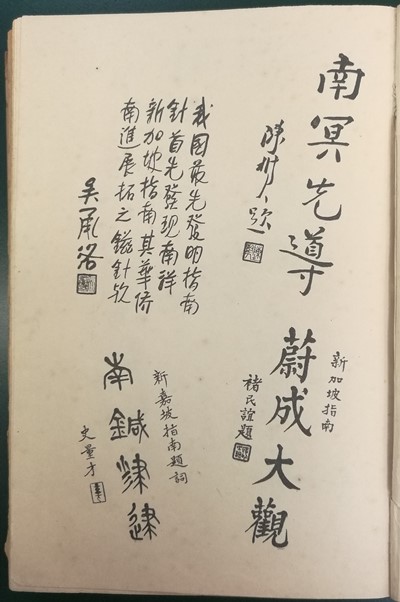 南冥先導
陳樹人題
我國最先發明指南
針首先發現南洋
新加坡指南其華僑
南進展拓之鎡針歟
吳承洛
新加坡指南
蔚成大觀
褚民誼題
新嘉坡指南題詞
南鍼
史量才